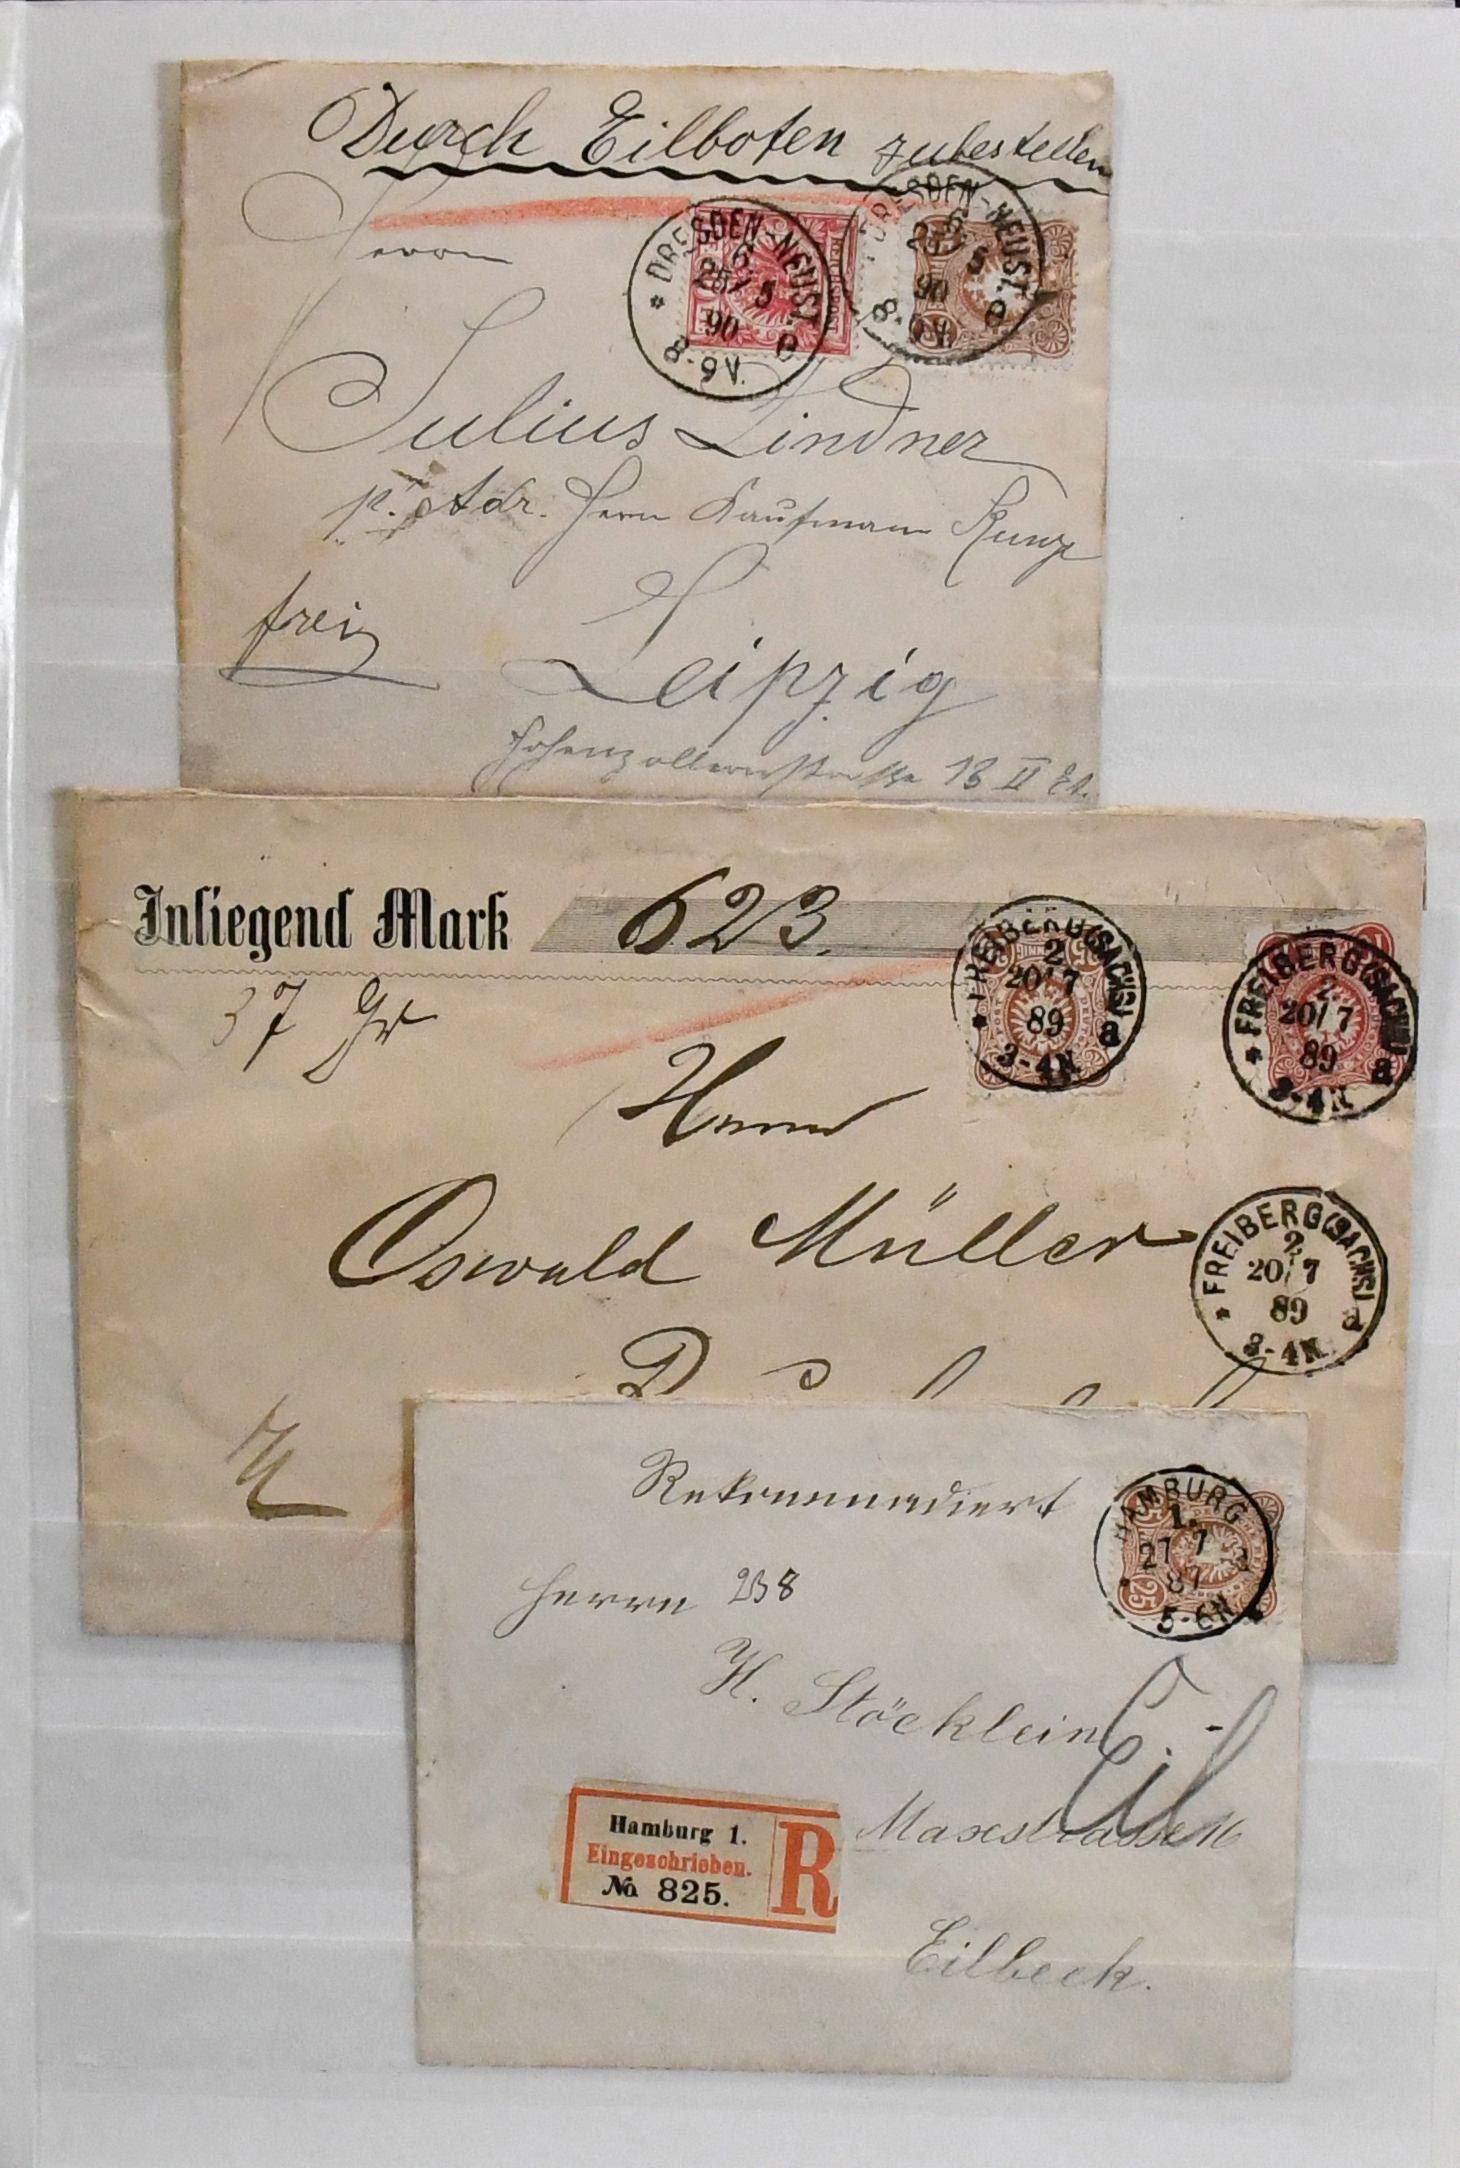 Durch Eilboten zu bestellen
Herrn
DRESDEN-NEUST.
6.
5
90
8-9V.
REICHSPOST
DRESDEN-NEUST.
6.
5
90
8-9V.
Julius Lindner
p. Adr. Herrn Kaufmann Kunze
frei
Leipzig
Hohenzollernstraße 13 II Et.
Inliegend Mark 623.
37 Gr
FREIBERG (SACHS)
2.
20/7
89
a
3-4N
FREIBERG (SACHS)
2.
20/7
89
a
3-4N
Herrn
Oswald Müller
FREIBERG (SACHS)
2.
20/7
89
a
3-4N
Rekommandiert
HAMBURG
1.
27 7
87
5-6N
25
Herrn 238
H. Stöcklein
Eil
Maxstrasse 16
Hamburg 1.
Eingeschrieben.
No 825.
R
Eilbeck.